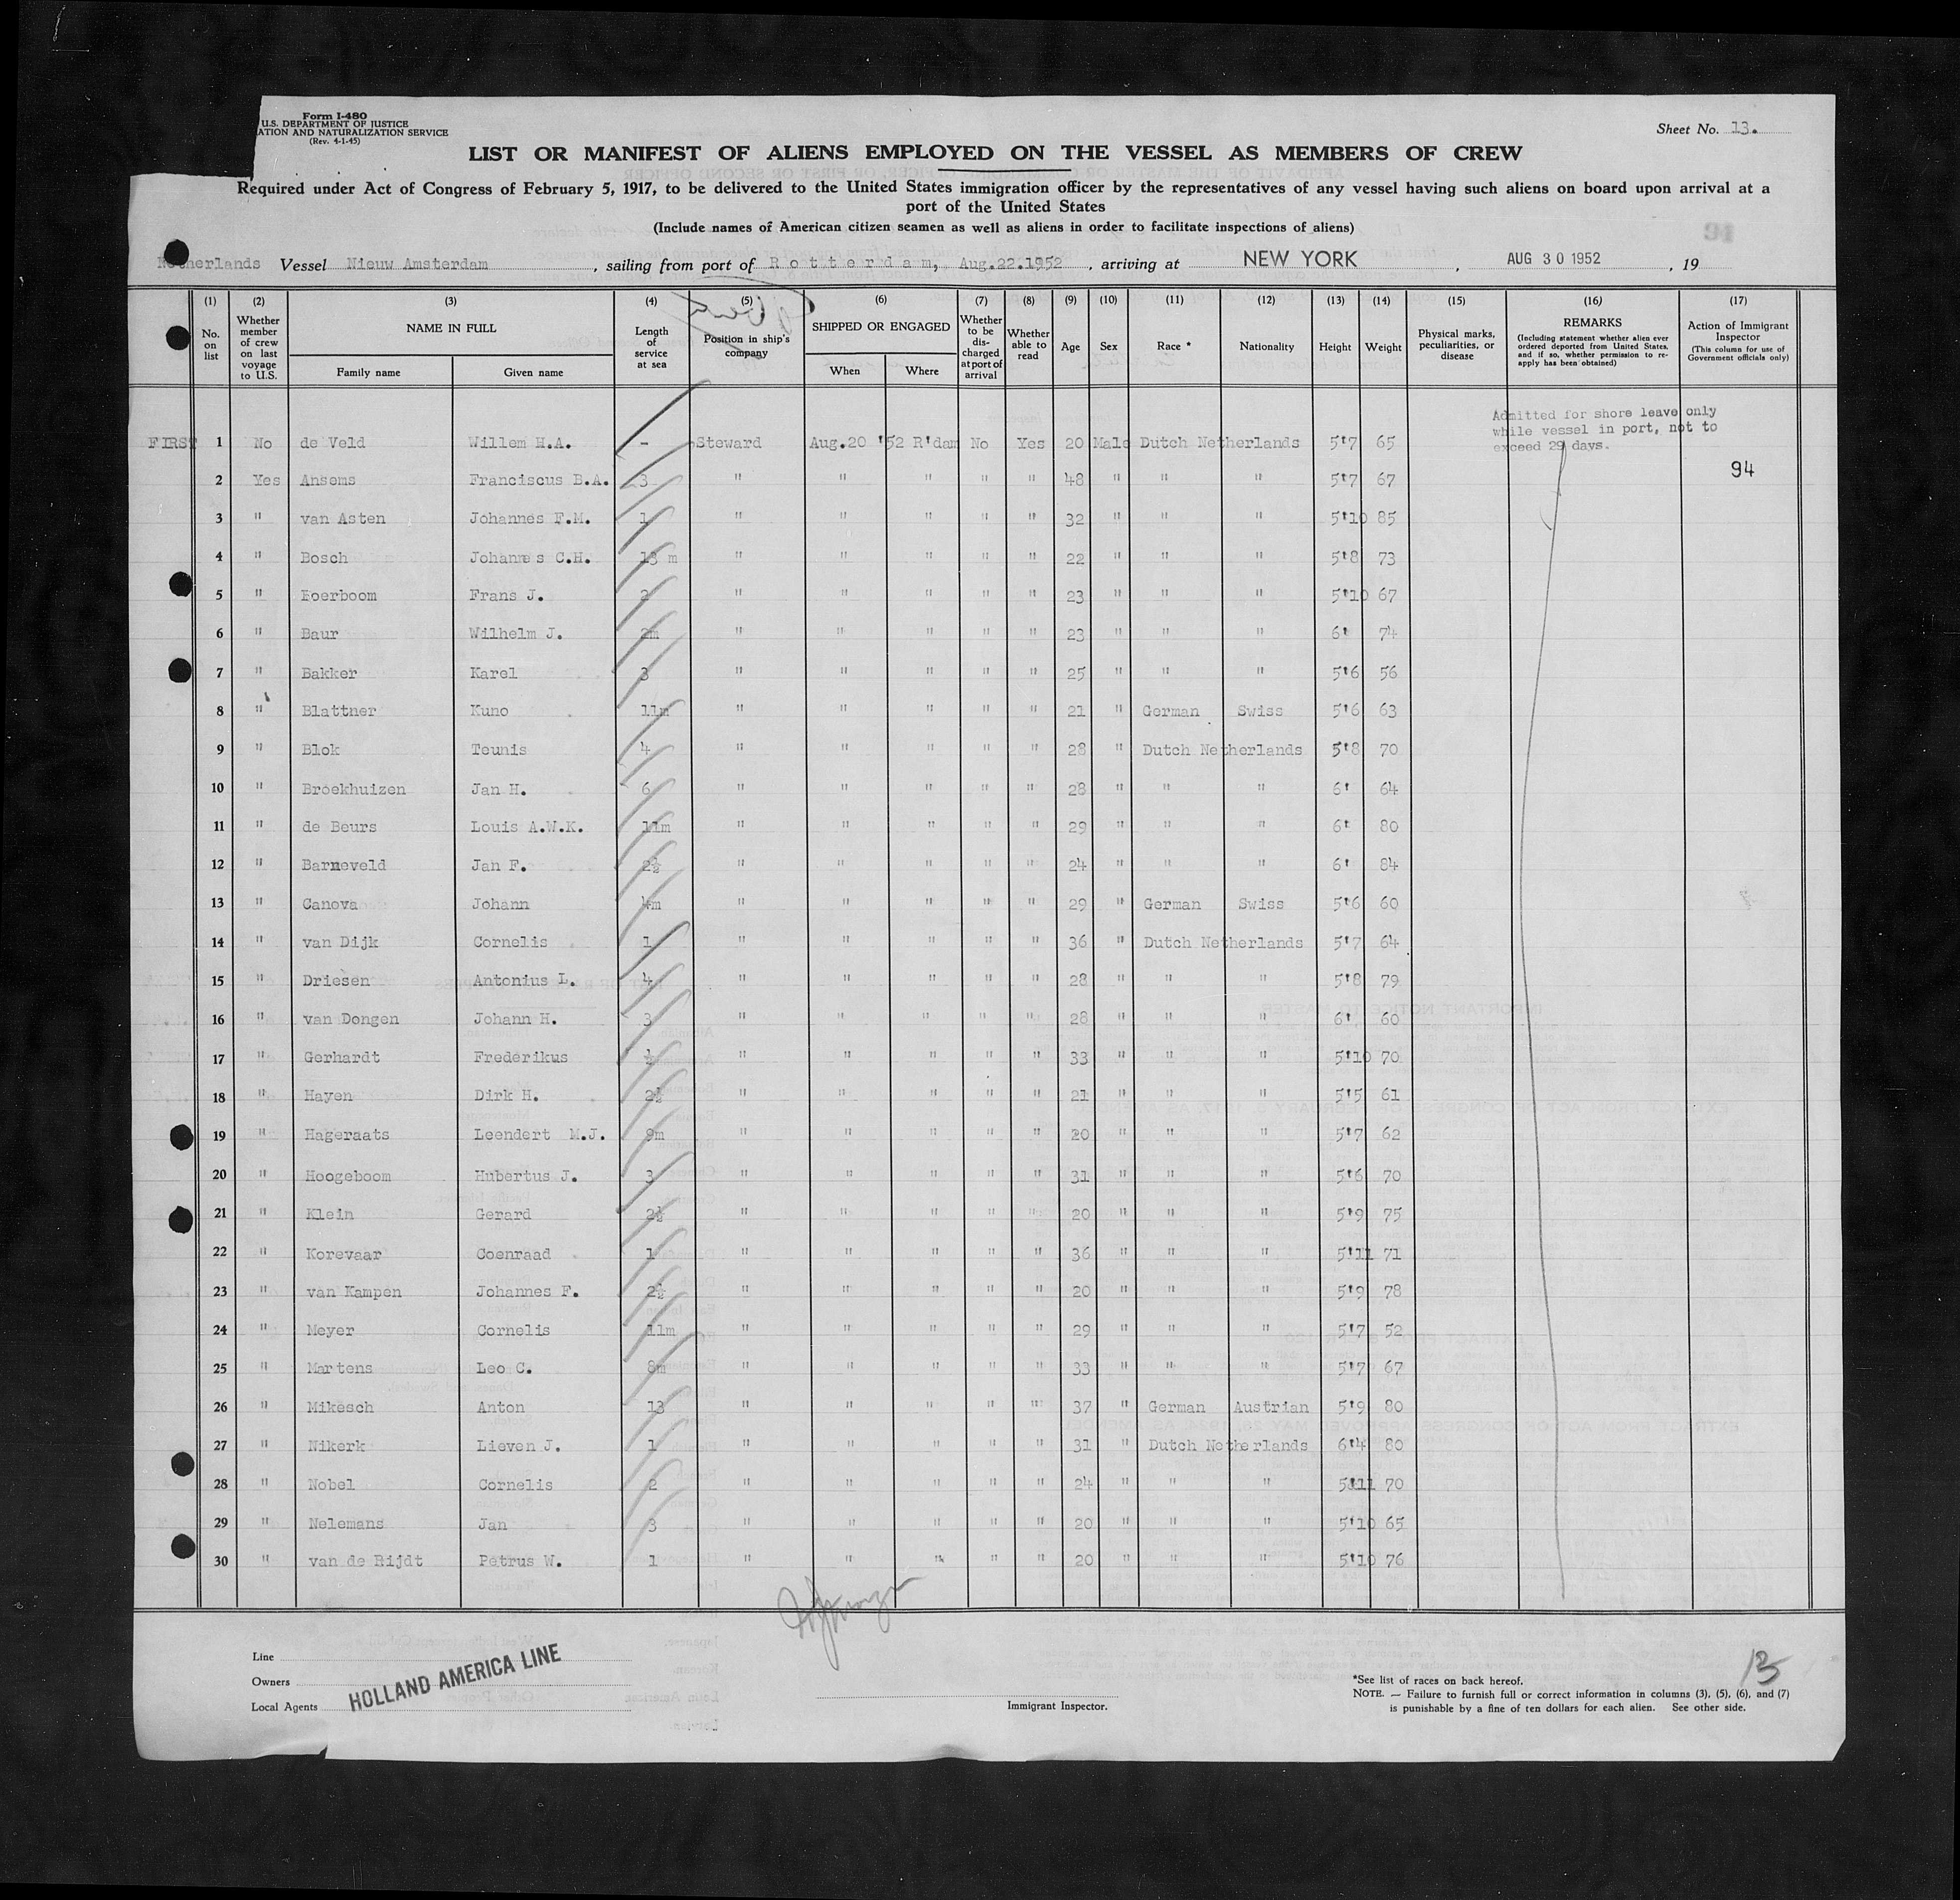 Form I-480
U.S. DEPARTMENT OF JUSTICE
ATION AND NATURALIZATION SERVICE
(Rev. 4-1-45)
Sheet No. 13.
LIST OR MANIFEST OF ALIENS EMPLOYED ON THE VESSEL AS MEMBERS OF CREW
Required under Act of Congress of February 5, 1917, to be delivered to the United States immigration officer by the representatives of any vessel having such aliens on board upon arrival at a
port of the United States
(Include names of American citizen seamen as well as aliens in order to facilitate inspections of aliens)
Netherlands Vessel Nieuw Amsterdam, sailing from port of Rotterdam, Aug.22.1952, arriving at NEW YORK, AUG 30 1952, 19
(1) (2) (3) (4) (5) (6) (7) (8) (9) (10) (11) (12) (13) (14) (15) (16) (17)
No. on list
Whether member of crew on last voyage to U.S.
NAME IN FULL
Family name
Given name
Length of service at sea
Position in ship's company
SHIPPED OR ENGAGED
When
Where
Whether to be discharged at port of arrival
Whether able to read
Age
Sex
Race *
Nationality
Height
Weight
Physical marks, peculiarities, or disease
REMARKS
(Including statement whether alien ever ordered deported from United States, and if so, whether permission to re-apply has been obtained)
Action of Immigrant Inspector
(This column for use of Government officials only)
Admitted for shore leave only
while vessel in port, not to
exceed 29 days.
94
FIRST 1 No de Veld Willem H.A. - Steward Aug.20 '52 R'dam No Yes 20 Male Dutch Netherlands 5'7 65
2 Yes Ansems Franciscus B.A. 3 " " " " " 48 " " " 5'7 67
3 " van Asten Johannes F.M. 1 " " " " " 32 " " " 5'10 85
4 " Bosch Johannes C.H. 18 m " " " " " 22 " " " 5'8 73
5 " Koerboom Frans J. 2 " " " " " 23 " " " 5'10 67
6 " Baur Wilhelm J. 2m " " " " " 23 " " " 6' 74
7 " Bakker Karel 3 " " " " " 25 " " " 5'6 56
8 " Blattner Kuno 11m " " " " " 21 " German Swiss 5'6 63
9 " Blok Teunis 4 " " " " " 28 " Dutch Netherlands 5'8 70
10 " Broekhuizen Jan H. 6 " " " " " 28 " " " 6' 64
11 " de Beurs Louis A.W.K. 11m " " " " " 29 " " " 6' 80
12 " Barneveld Jan F. 2½ " " " " " 24 " " " 6' 84
13 " Canova Johann 4m " " " " " 29 " German Swiss 5'6 60
14 " van Dijk Cornelis 1 " " " " " 36 " Dutch Netherlands 5'7 64
15 " Driesen Antonius L. 4 " " " " " 28 " " " 5'8 79
16 " van Dongen Johann H. 3 " " " " " 28 " " " 6' 60
17 " Gerhardt Frederikus ½ " " " " " 33 " " " 5'10 70
18 " Hayen Dirk H. 2½ " " " " " 21 " " " 5'5 61
19 " Hageraats Leendert M.J. 9m " " " " " 20 " " " 5'7 62
20 " Hoogeboom Hubertus J. 3 " " " " " 31 " " " 5'6 70
21 " Klein Gerard 2½ " " " " " 20 " " " 5'9 75
22 " Korevaar Coenraad 1 " " " " " 36 " " " 5'11 71
23 " van Kampen Johannes F. 2½ " " " " " 20 " " " 5'9 78
24 " Meyer Cornelis 11m " " " " " 29 " " " 5'7 52
25 " Martens Leo C. 8m " " " " " 33 " " " 5'7 67
26 " Mikesch Anton 13 " " " " " 37 " German Austrian 5'9 80
27 " Nikerk Lieven J. 1 " " " " " 31 " Dutch Netherlands 6'4 80
28 " Nobel Cornelis 2 " " " " " 24 " " " 5'11 70
29 " Nelemans Jan 3 " " " " " 20 " " " 5'10 65
30 " van de Rijdt Petrus W. 1 " " " " " 20 " " " 5'10 76
Line
Owners
Local Agents
HOLLAND AMERICA LINE
Immigrant Inspector.
13
*See list of races on back hereof.
NOTE. — Failure to furnish full or correct information in columns (3), (5), (6), and (7)
is punishable by a fine of ten dollars for each alien. See other side.